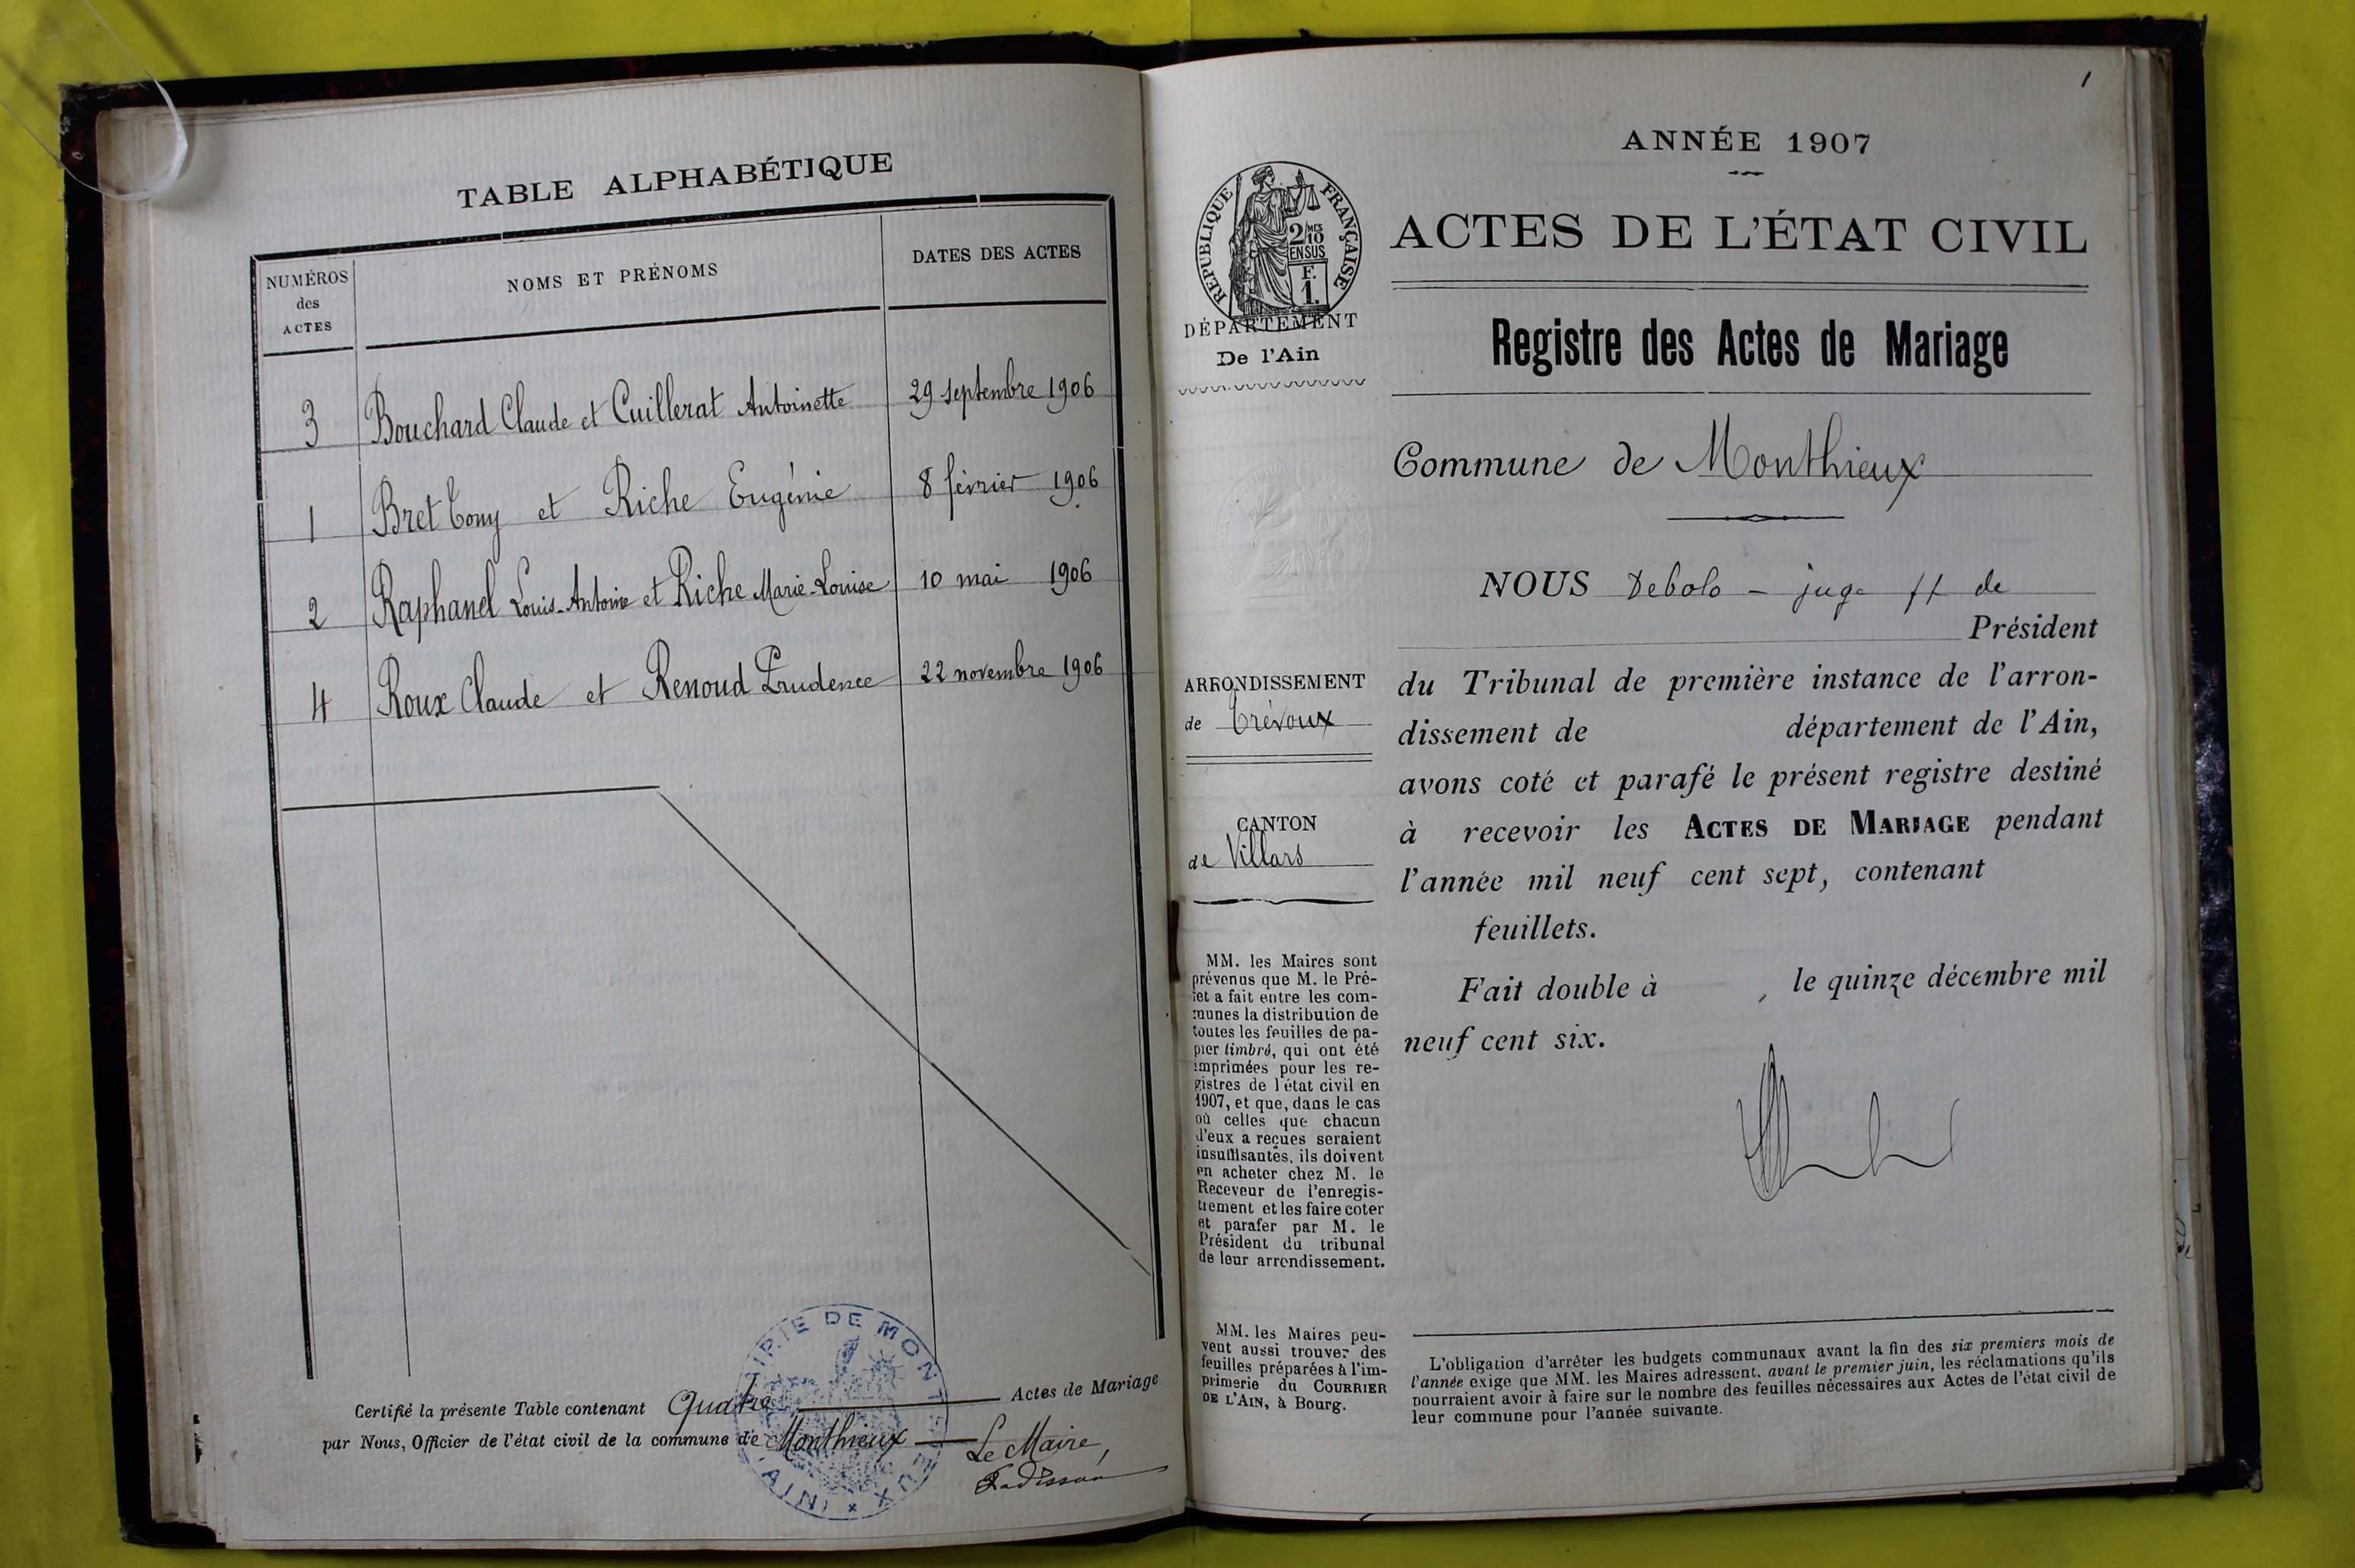 TABLE ALPHABÉTIQUE
NUMÉROS
des
ACTES
NOMS ET PRÉNOMS
DATES DES ACTES
3 Bouchard Claude et Cuillerat Antoinette 29 septembre 1906
1 Bret Tony et Riche Eugénie 8 février 1906
2 Raphanel Louis-Antoine et Riche Marie-Louise 10 mai 1906
4 Roux Claude et Renoud Prudence 22 novembre 1906
Certifié la présente Table contenant Quatre Actes de Mariage
par Nous, Officier de l'état civil de la commune de Monthieux
Le Maire,
MAIRIE DE MONTHIEUX
(AIN)
1
ANNÉE 1907
RÉPUBLIQUE FRANÇAISE
2/MES
10
EN SUS
F.
1.
DÉPARTEMENT
De l'Ain
ACTES DE L'ÉTAT CIVIL
Registre des Actes de Mariage
Commune de Monthieux
NOUS Debolo - juge ff de
Président
du Tribunal de première instance de l'arron-
dissement de département de l'Ain,
avons coté et parafé le présent registre destiné
à recevoir les ACTES DE MARIAGE pendant
l'année mil neuf cent sept, contenant
feuillets.
Fait double à , le quinze décembre mil
neuf cent six.
ARRONDISSEMENT
de Trévoux
CANTON
de Villars
MM. les Maires sont
prévenus que M. le Pré-
fet a fait entre les com-
munes la distribution de
toutes les feuilles de pa-
pier timbré, qui ont été
imprimées pour les re-
gistres de l'état civil en
1907, et que, dans le cas
où celles que chacun
d'eux a reçues seraient
insuffisantes, ils doivent
en acheter chez M. le
Receveur de l'enregis-
trement et les faire coter
et parafer par M. le
Président du tribunal
de leur arrondissement.
MM. les Maires peu-
vent aussi trouver des
feuilles préparées à l'im-
primerie du COURRIER
DE L'AIN, à Bourg.
L'obligation d'arrêter les budgets communaux avant la fin des six premiers mois de
l'année exige que MM. les Maires adressent, avant le premier juin, les réclamations qu'ils
pourraient avoir à faire sur le nombre des feuilles nécessaires aux Actes de l'état civil de
leur commune pour l'année suivante.